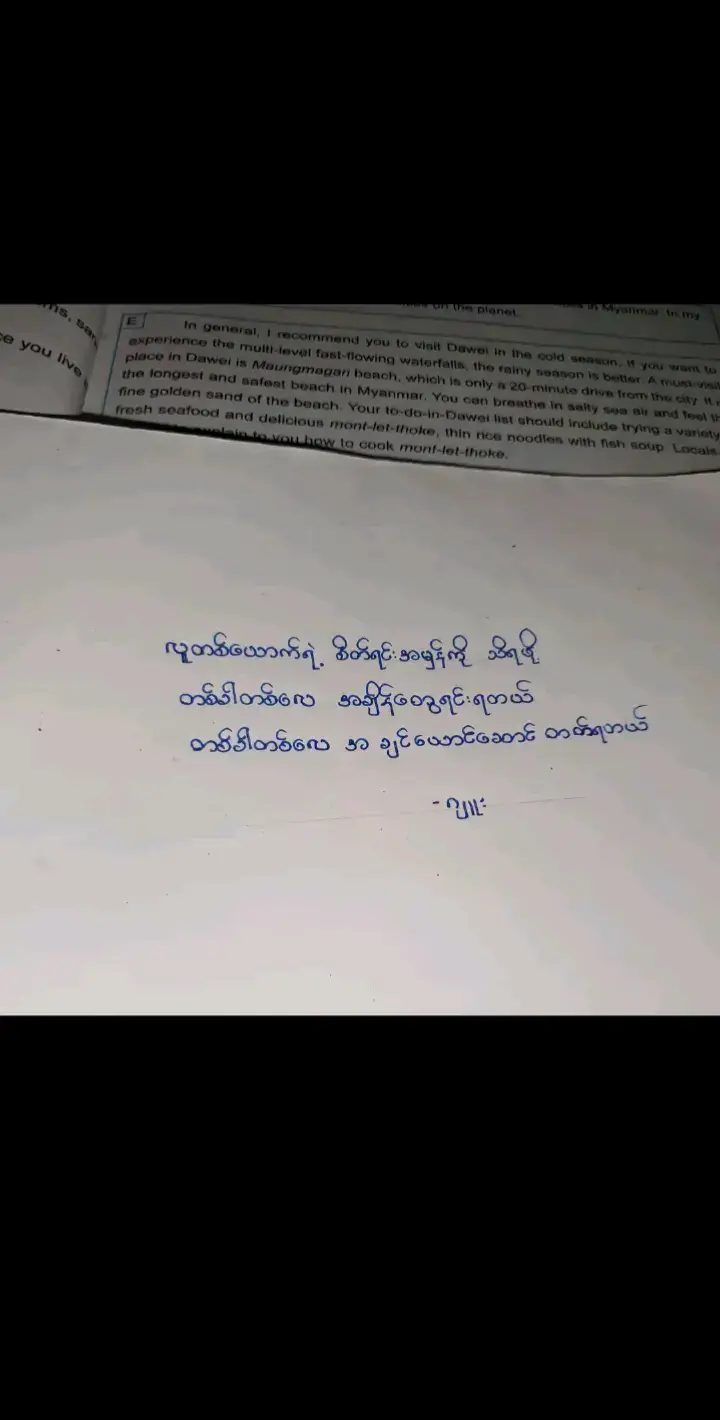 on the planet. in Myanmar. In my
ce you live
E In general, I recommend you to visit Dawei in the cold season. If you want to
experience the multi-level fast-flowing waterfalls, the rainy season is better. A must-visit
place in Dawei is Maungmagan beach, which is only a 20-minute drive from the city. It
the longest and safest beach in Myanmar. You can breathe in salty sea air and feel
fine golden sand of the beach. Your to-do-in-Dawei list should include trying a variety
fresh seafood and delicious mont-let-thoke, thin rice noodles with fish soup. Locals
to you how to cook mont-let-thoke.
လူတစ်ယောက်ရဲ့ စိတ်ရင်းအမှန်ကို သိရဖို့
တစ်ခါတစ်လေ အချိန်တွေရင်းရတယ်
တစ်ခါတစ်လေ အ ချင်ယောင်ဆောင် တတ်ရတယ်
- ဂျူး